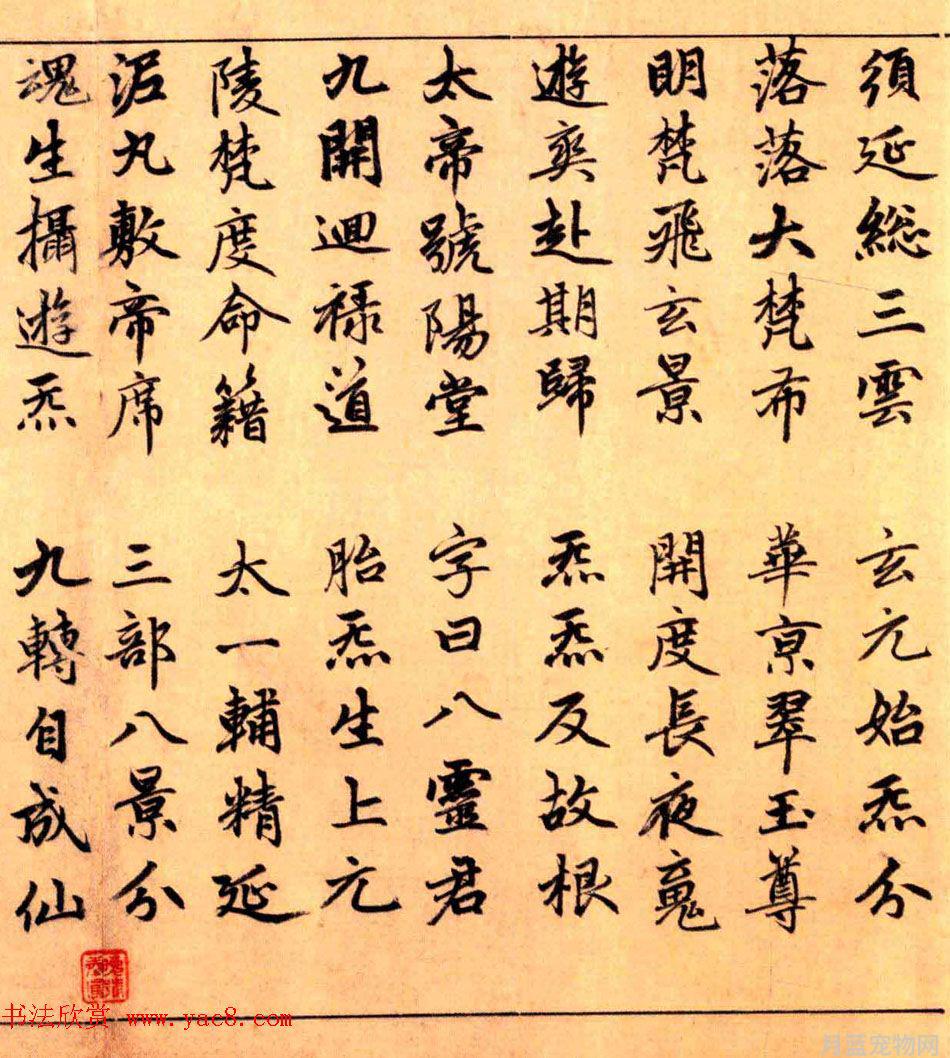 須延総三雲　玄元始炁分
落落大梵布　華京翠玉尊
明梵飛玄景　開度長夜魂
遊爽赴期歸　炁炁反故根
太帝號陽堂　字曰八靈君
九開迴祿道　胎炁生上元
陵梵度命籍　太一輔精延
泥丸敷帝席　三部八景分
魂生攝遊炁　九轉自成仙
书法欣赏 www.yac8.com
月蓝宠物网